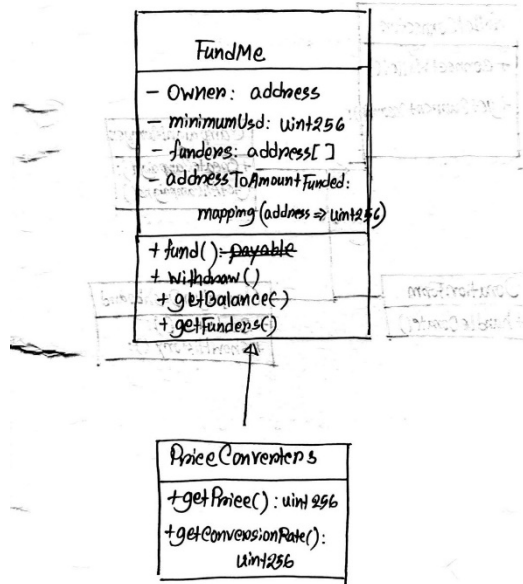 FundMe
- Owner: address
- minimumUsd: uint256
- funders: address[]
- addressToAmountFunded:
mapping(address => uint256)
+ fund(): payable
+ withdraw()
+ getBalance()
+ getFunders()
PriceConverters
+getPrice(): uint256
+getConversionRate():
uint256